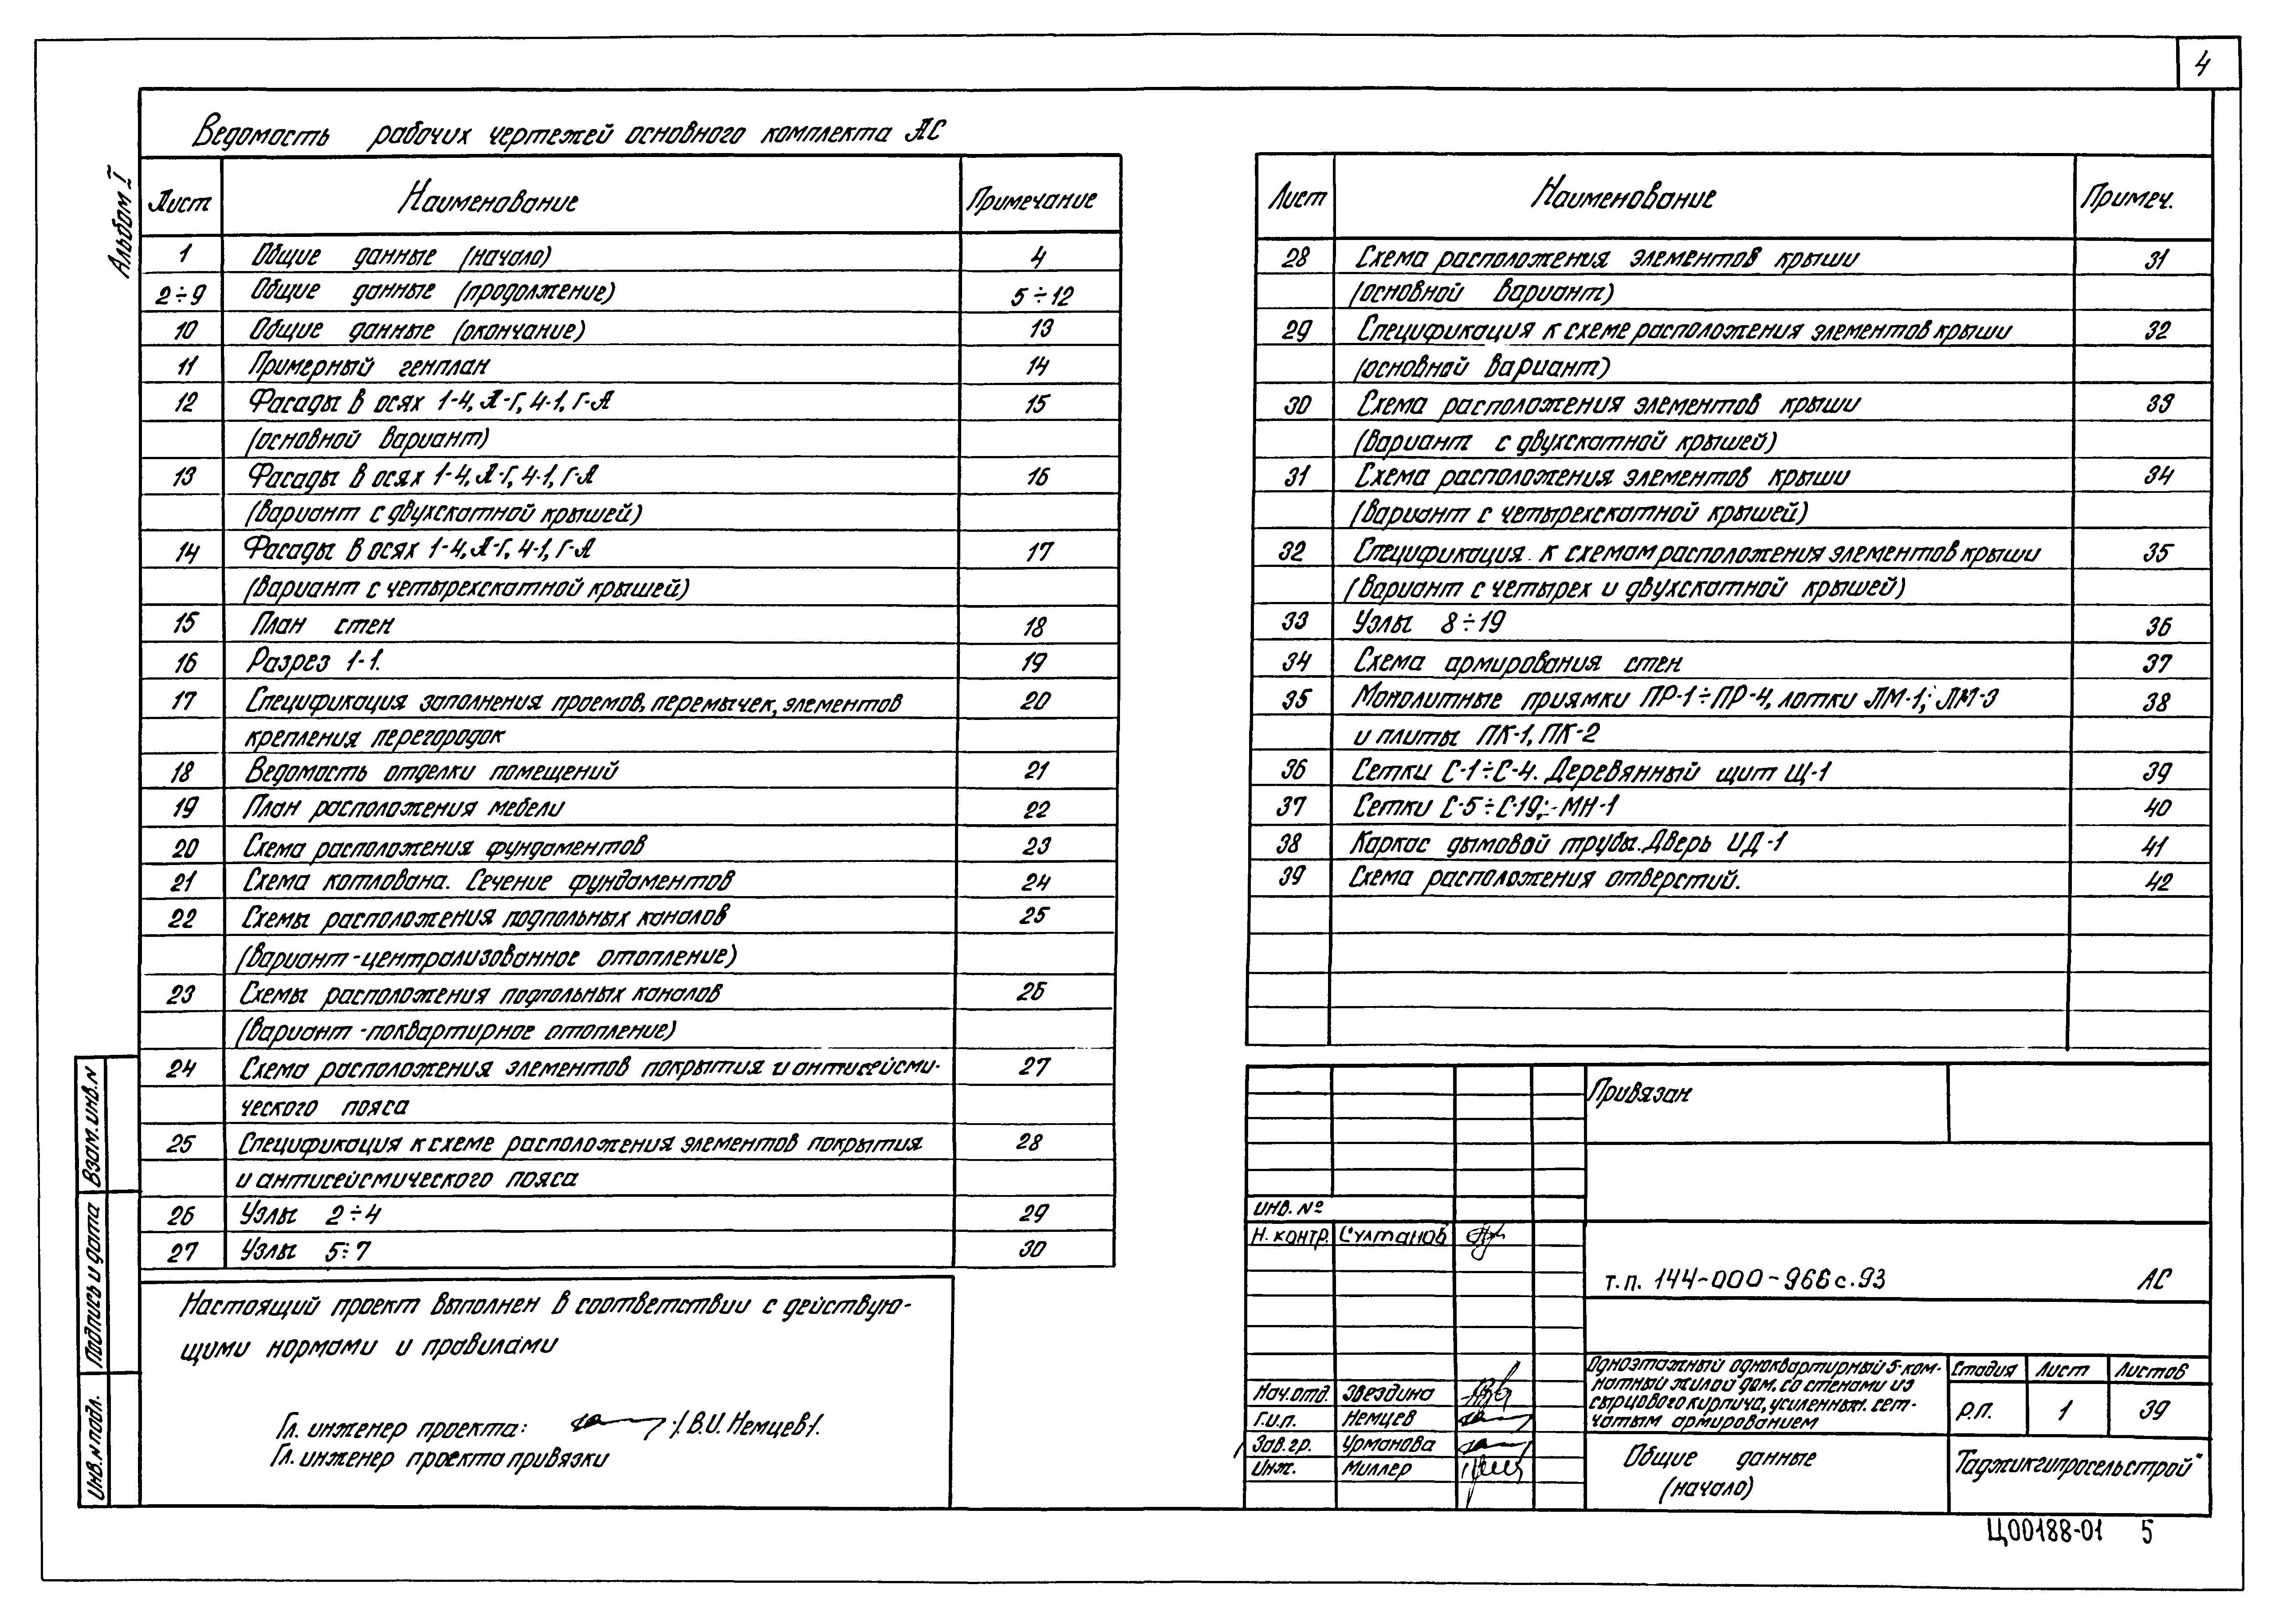 4
Альбом I
Ведомость рабочих чертежей основного комплекта АС
Лист Наименование Примечание
1 Общие данные (начало) 4
2÷9 Общие данные (продолжение) 5÷12
10 Общие данные (окончание) 13
11 Примерный генплан 14
12 Фасады в осях 1-4, А-Г, 4-1, Г-А 15
(основной вариант)
13 Фасады в осях 1-4, А-Г, 4-1, Г-А 16
(вариант с двухскатной крышей)
14 Фасады в осях 1-4, А-Г, 4-1, Г-А 17
(вариант с четырехскатной крышей)
15 План стен 18
16 Разрез 1-1. 19
17 Спецификация заполнения проемов, перемычек, элементов 20
крепления перегородок
18 Ведомость отделки помещений 21
19 План расположения мебели 22
20 Схема расположения фундаментов 23
21 Схема котлована. Сечение фундаментов 24
22 Схемы расположения подпольных каналов 25
(вариант-централизованное отопление)
23 Схемы расположения подпольных каналов 26
(вариант-поквартирное отопление)
24 Схема расположения элементов покрытия и антисейсми- 27
ческого пояса
25 Спецификация к схеме расположения элементов покрытия 28
и антисейсмического пояса
26 Узлы 2÷4 29
27 Узлы 5÷7 30
Лист Наименование Примеч.
28 Схема расположения элементов крыши 31
(основной вариант)
29 Спецификация к схеме расположения элементов крыши 32
(основной вариант)
30 Схема расположения элементов крыши 33
(вариант с двухскатной крышей)
31 Схема расположения элементов крыши 34
(вариант с четырехскатной крышей)
32 Спецификация к схемам расположения элементов крыши 35
(вариант с четырех и двухскатной крышей)
33 Узлы 8÷19 36
34 Схема армирования стен 37
35 Монолитные приямки ПР-1÷ПР-4, лотки ЛМ-1; ЛМ-3 38
и плиты ПК-1, ПК-2
36 Сетки С-1÷С-4. Деревянный щит Щ-1 39
37 Сетки С-5÷С-19; МН-1 40
38 Каркас дымовой трубы. Дверь ЦД-1 41
39 Схема расположения отверстий. 42
Настоящий проект выполнен в соответствии с действую-
щими нормами и правилами
Гл. инженер проекта: /В.И. Немцев/.
Гл. инженер проекта привязки
Взам. инв. N
Подпись и дата
Инв. N подл.
Привязан
инв. №
Н. контр. Султанов
т.п. 144-000-966с.93 АС
Нач. отд. Звездина
Г.и.п. Немцев
Зав. гр. Урманова
Инж. Миллер
Одноэтажный одноквартирный 5-ком-
натный жилой дом, со стенами из
сырцового кирпича, усиленных сет-
чатым армированием
Стадия Лист Листов
р.п. 1 39
Общие данные
(начало)
Таджикгипросельстрой"
Ц00188-01 5